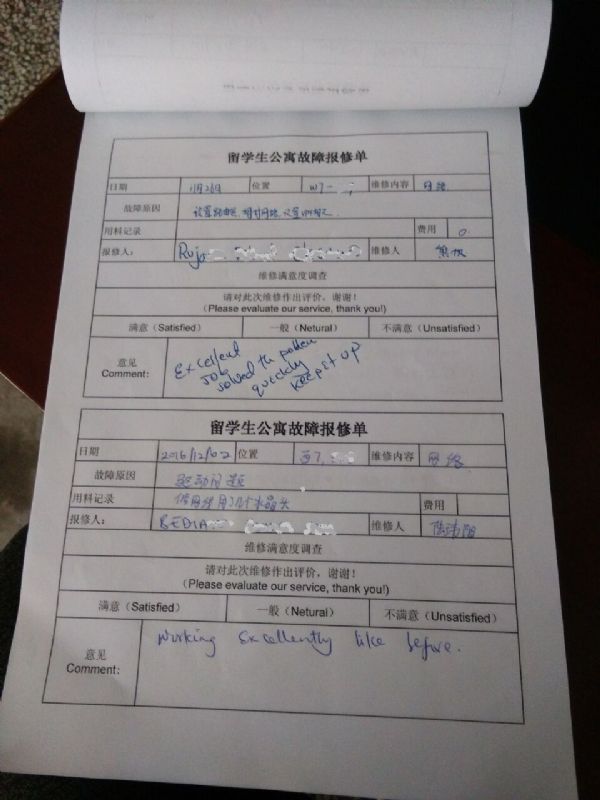 留学生公寓故障报修单
日期 11月26日 位置 W7- 维修内容 网络
故障原因 设置路由器,
用料记录 费用 0
报修人: Ruj 维修人 熊
维修满意度调查
请对此次维修作出评价,谢谢!
(Please evaluate our service, thank you!)
满意(Satisfied) 一般(Netural) 不满意(Unsatisfied)
意见
Comment:
Excellent
Job
solved the
quickly
keep it up
留学生公寓故障报修单
日期 2016/12/02 位置 西7, 维修内容 网络
故障原因 驱动问题
用料记录 使用 水晶头 费用
报修人: BEDIA 维修人 陈
维修满意度调查
请对此次维修作出评价,谢谢!
(Please evaluate our service, thank you!)
满意(Satisfied) 一般(Netural) 不满意(Unsatisfied)
意见
Comment:
Working Excellently like before.